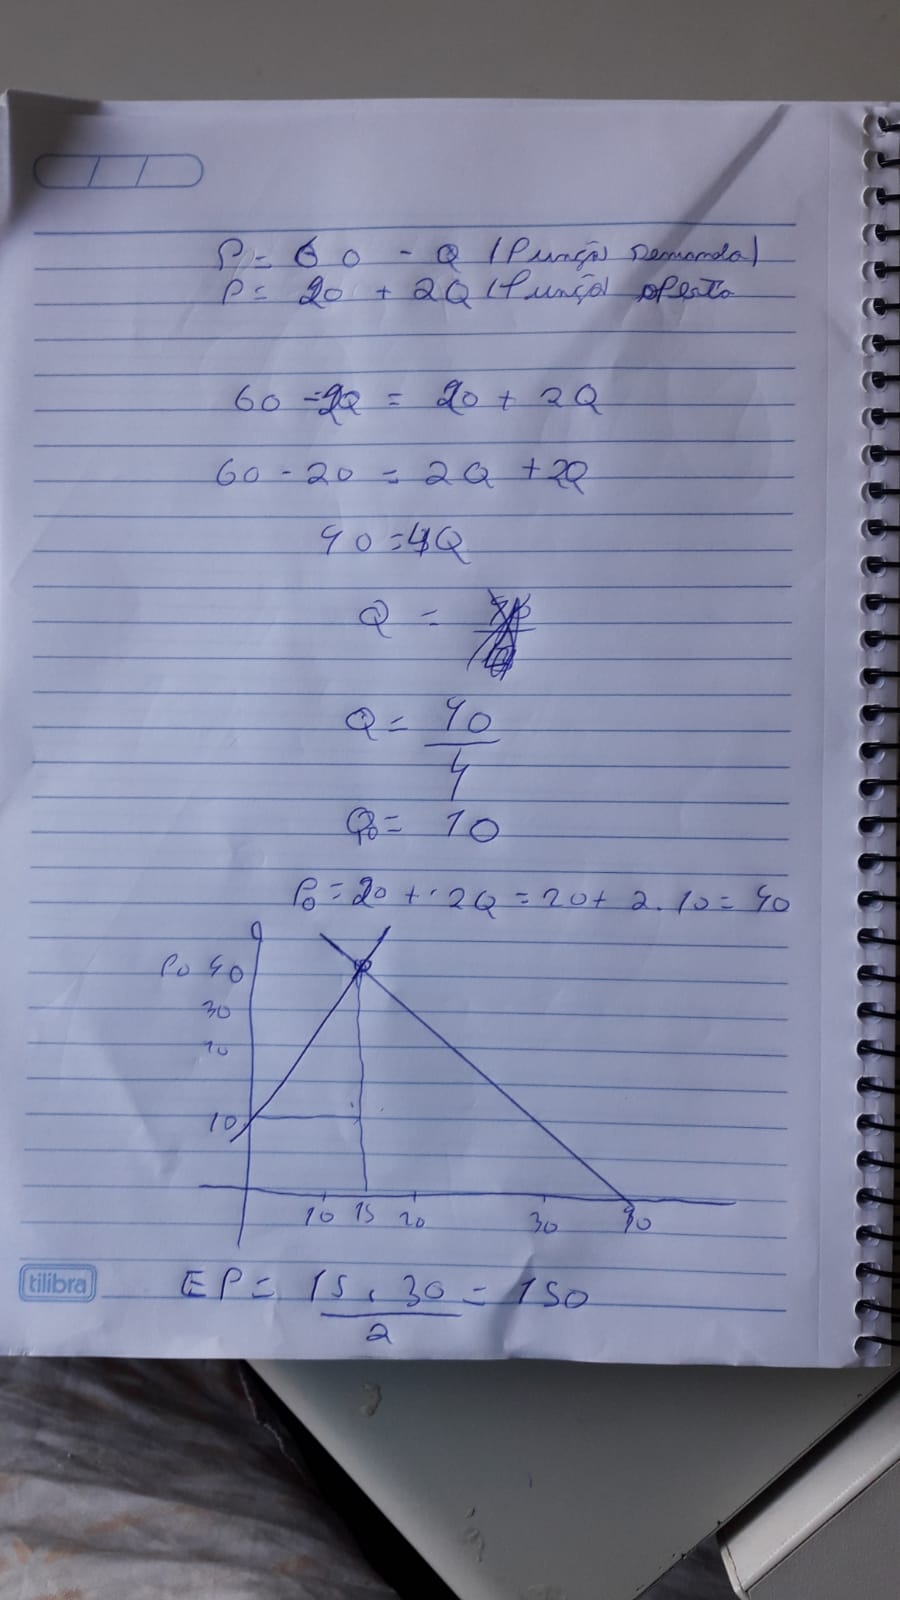 P = 60 - Q (Função Demanda)
P = 20 + 2Q (Função oferta
60 - 2Q = 20 + 2Q
60 - 20 = 2Q + 2Q
40 = 4Q
Q =
Q = 40
4
Q0 = 10
P0 = 20 + 2Q = 20 + 2.10 = 40
P0 40
30
20
10
10 15 20 30 40
EP = 15 . 30 = 150
2
tilibra